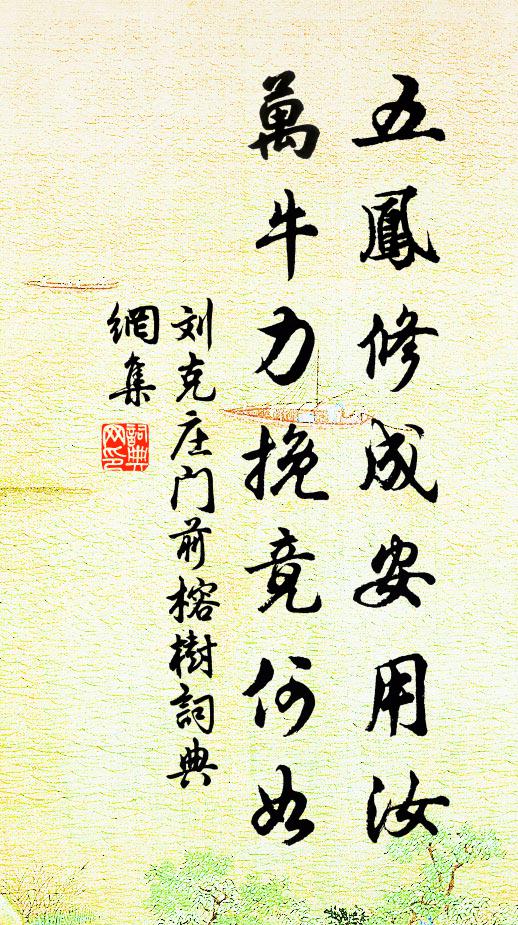 五鳳修成安用汝
萬牛力挽竟何如
刘克庄门前榕樹詞典
網集
詞典
网印